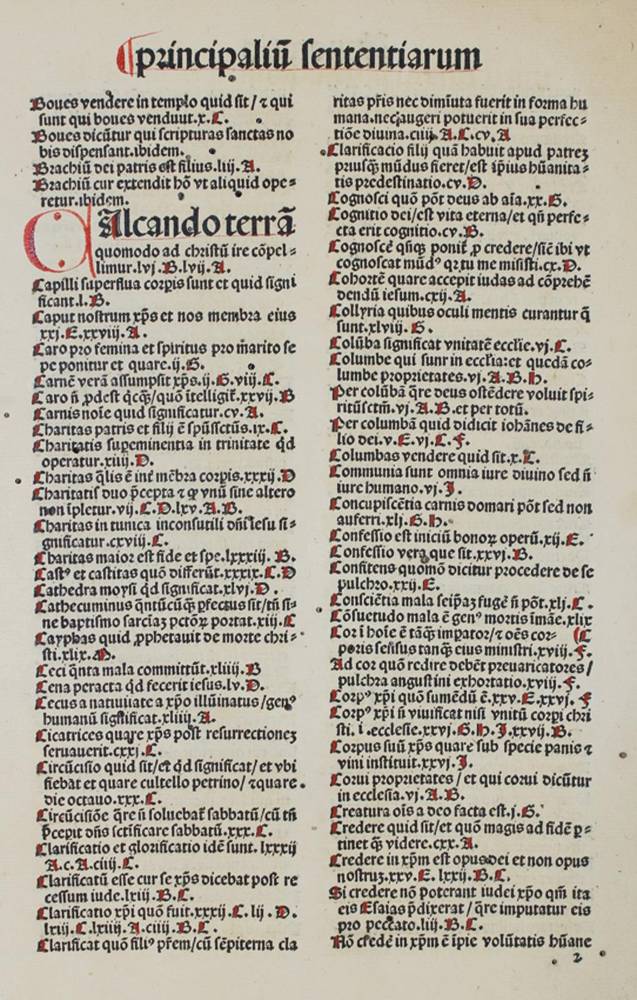 principaliū sententiarum
Boues vendere in templo quid sit/ ⁊ qui
sunt qui boues venduut.x.C.
Boues dicūtur qui scripturas sanctas no
bis dispensant.ibidem.
Brachiū dei patris est filius.liij.A.
Brachiū cur extendit hō vt aliquid ope⸗
retur.ibidem.
CAlcando terrā
quomodo ad christū ire cōpel⸗
limur.lvj.B.lvij.A.
Capilli superflua corꝑis sunt et quid signi
ficant.l.B.
Caput nostrum xp̄s et nos membra eius
xxj.E.xxviij.A.
Caro pro femina et spiritus pro marito se
pe ponitur et quare.ij.G.
Carnē verā assumpsit xp̄s.ij.G.viij.C.
Caro n̄ ꝓdest q̇cq̄/ quō ītelligit̄.xxvij.B
Carnis noīe quid significatur.cv.A.
Charitas patris et filij ē sp̄ussctūs.ix.C.
Charitatis supeminentia in trinitate qd
operatur.xiiij.D.
Charitas q̄lis ē int̄ mēbra corꝑis.xxxij.D
Charitatis duo p̄cepta ⁊ ꝙ vnū sine altero
non īpletur.vij.C.D.lxv.A.B.
Charitas in tunica inconsutili dn̄i iesu si⸗
gnificatur.cxviij.C.
Charitas maior est fide et spe.lxxxiij. B.
Castꝰ et castitas quō differūt.xxxix.C.D
Cathedra moysi qd significat.xlvj.D.
Cathecuminus q̄ntūcūqꝫ ꝓfectus sit/ tn̄ si⸗
ne baptismo sarcinaꝫ pctōꝝ portat.xiij.C
Cayphas quid ꝓphetauit de morte chri⸗
sti.xlix.
Ceci q̄nta mala committūt.xliiij.B
Cena peracta qd fecerit iesus.lv.D.
Cecus a natiuitate a xp̄o illūinatus/ genꝰ
humanū significat.xliiij.A.
Cicatrices quare xp̄s post resurrectioneꝫ
seruauerit.cxxj.C.
Circūcisio quid sit/ et qd significat/ et vbi
fiebat et quare cultello petrino/ ⁊ quare
die octauo.xxx.C.
Circūcisiōe q̄re n̄ soluebat̄ sabbatū/ cū tn̄
p̄cepit dn̄s sctificare sabbatū.xxx.C.
Clarificatio et glorificatio idē sunt.lxxxij
A.c.A.ciiij.C.
Clarificatū esse cur se xp̄s dicebat post re
cessum iude.lxiij.B.C.
Clarificatio xp̄i quō fuit.xxxij.C.lij.D.
lxiij.C.lxiiij.A.ciiij.B.C.
Clarificat quō filiꝰ pr̄em/ cū sēpiterna cla
ritas pr̄is nec diminuta fuerit in forma hu
mana.nec augeri potuerit in sua perfec⸗
tiōe diuina.ciiij.A.C.cv.A
Clarificacio filij quā habuit apud patreꝫ
priusqꝫ mūdus fieret/ est ip̄ius hūanita⸗
tis predestinatio.cv.D.
Cognosci quō pōt deus ab aīa.xx.G.
Cognitio dei/ est vita eterna/ et qn̄ perfe⸗
cta erit cognitio.cv.B.
Cognoscē qn̄qꝫ ponit̄ ꝓ credere/ sic̄ ibi vt
cognoscat mūdꝰ qꝛ tu me misisti.cx.D.
Cohortē quare accepit iudas ad cōprehē
dendū iesum.cxij.A.
Collyria quibus oculi mentis curantur q̄
sunt.xlviij.G.
Colūba significat vnitatē ecclīe.vj.C.
Columbe qui sunr in ecclīa: et quedā co⸗
lumbe proprietates.vj.A.B.h.
Per colūbā q̄re deus ostēdere voluit spi⸗
ritūsctm̄.vj.A.B.et per totū.
Per columbā quid didicit iohānes de fi⸗
lio dei.v.E.vj.C.F.
Columbas vendere quid sit.x.C.
Communia sunt omnia iure diuino sed n̄
iure humano.vj.J.
Concupiscētia carnis domari pōt sed non
auferri.xlj.G.h.
Confessio est iniciū bonoꝝ operū.xij.E.
Confessio vera que sit.xxvj.B.
Confitens quomōo dicitur procedere de se
pulchro.xxij.E.
Consciētia mala seip̄aꝫ fugē n̄ pōt.xlj.C.
Cōsuetudo mala ē genꝰ mortis īmāe.xlix
Cor ī hoīe ē tāqꝫ imꝑator/ ⁊ oēs cor⸗ (C
poris sensus tanqꝫ eius ministri.xviij.F.
Ad cor quō redire debēt preuaricatores/
pulchra angustini exhortatio.xviij.F.
Corpꝰ xp̄i quō sumēdū ē.xxv.E.xxvj.F
Corpꝰ xp̄i n̄ viuificat nisi vnitū corꝑi chri
sti. i. ecclesie.xxvj.G.h.J.xxvij.B.
Corpus suū xp̄s quare sub specie panis ⁊
vini instituit.xxvj.J.
Corui proprietates/ et qui corui dicūtur
in ecclesia.vj.A.B.
Creatura oīs a deo facta est.j.G.
Credere quid sit/ et quō magis ad fidē ꝑ⸗
tinet qꝫ videre.cxx.A.
Credere in xp̄m est opus dei et non opus
nostruꝫ.xxv.E.lxxij.B.C.
Si credere nō poterant iudei xp̄o qm̄ ita
eis Esaias p̄dixerat/ q̄re imputatur eis
pro peccato.liij.B.C.
Nō credē in xp̄m ē ip̄ie volūtatis hūane
2